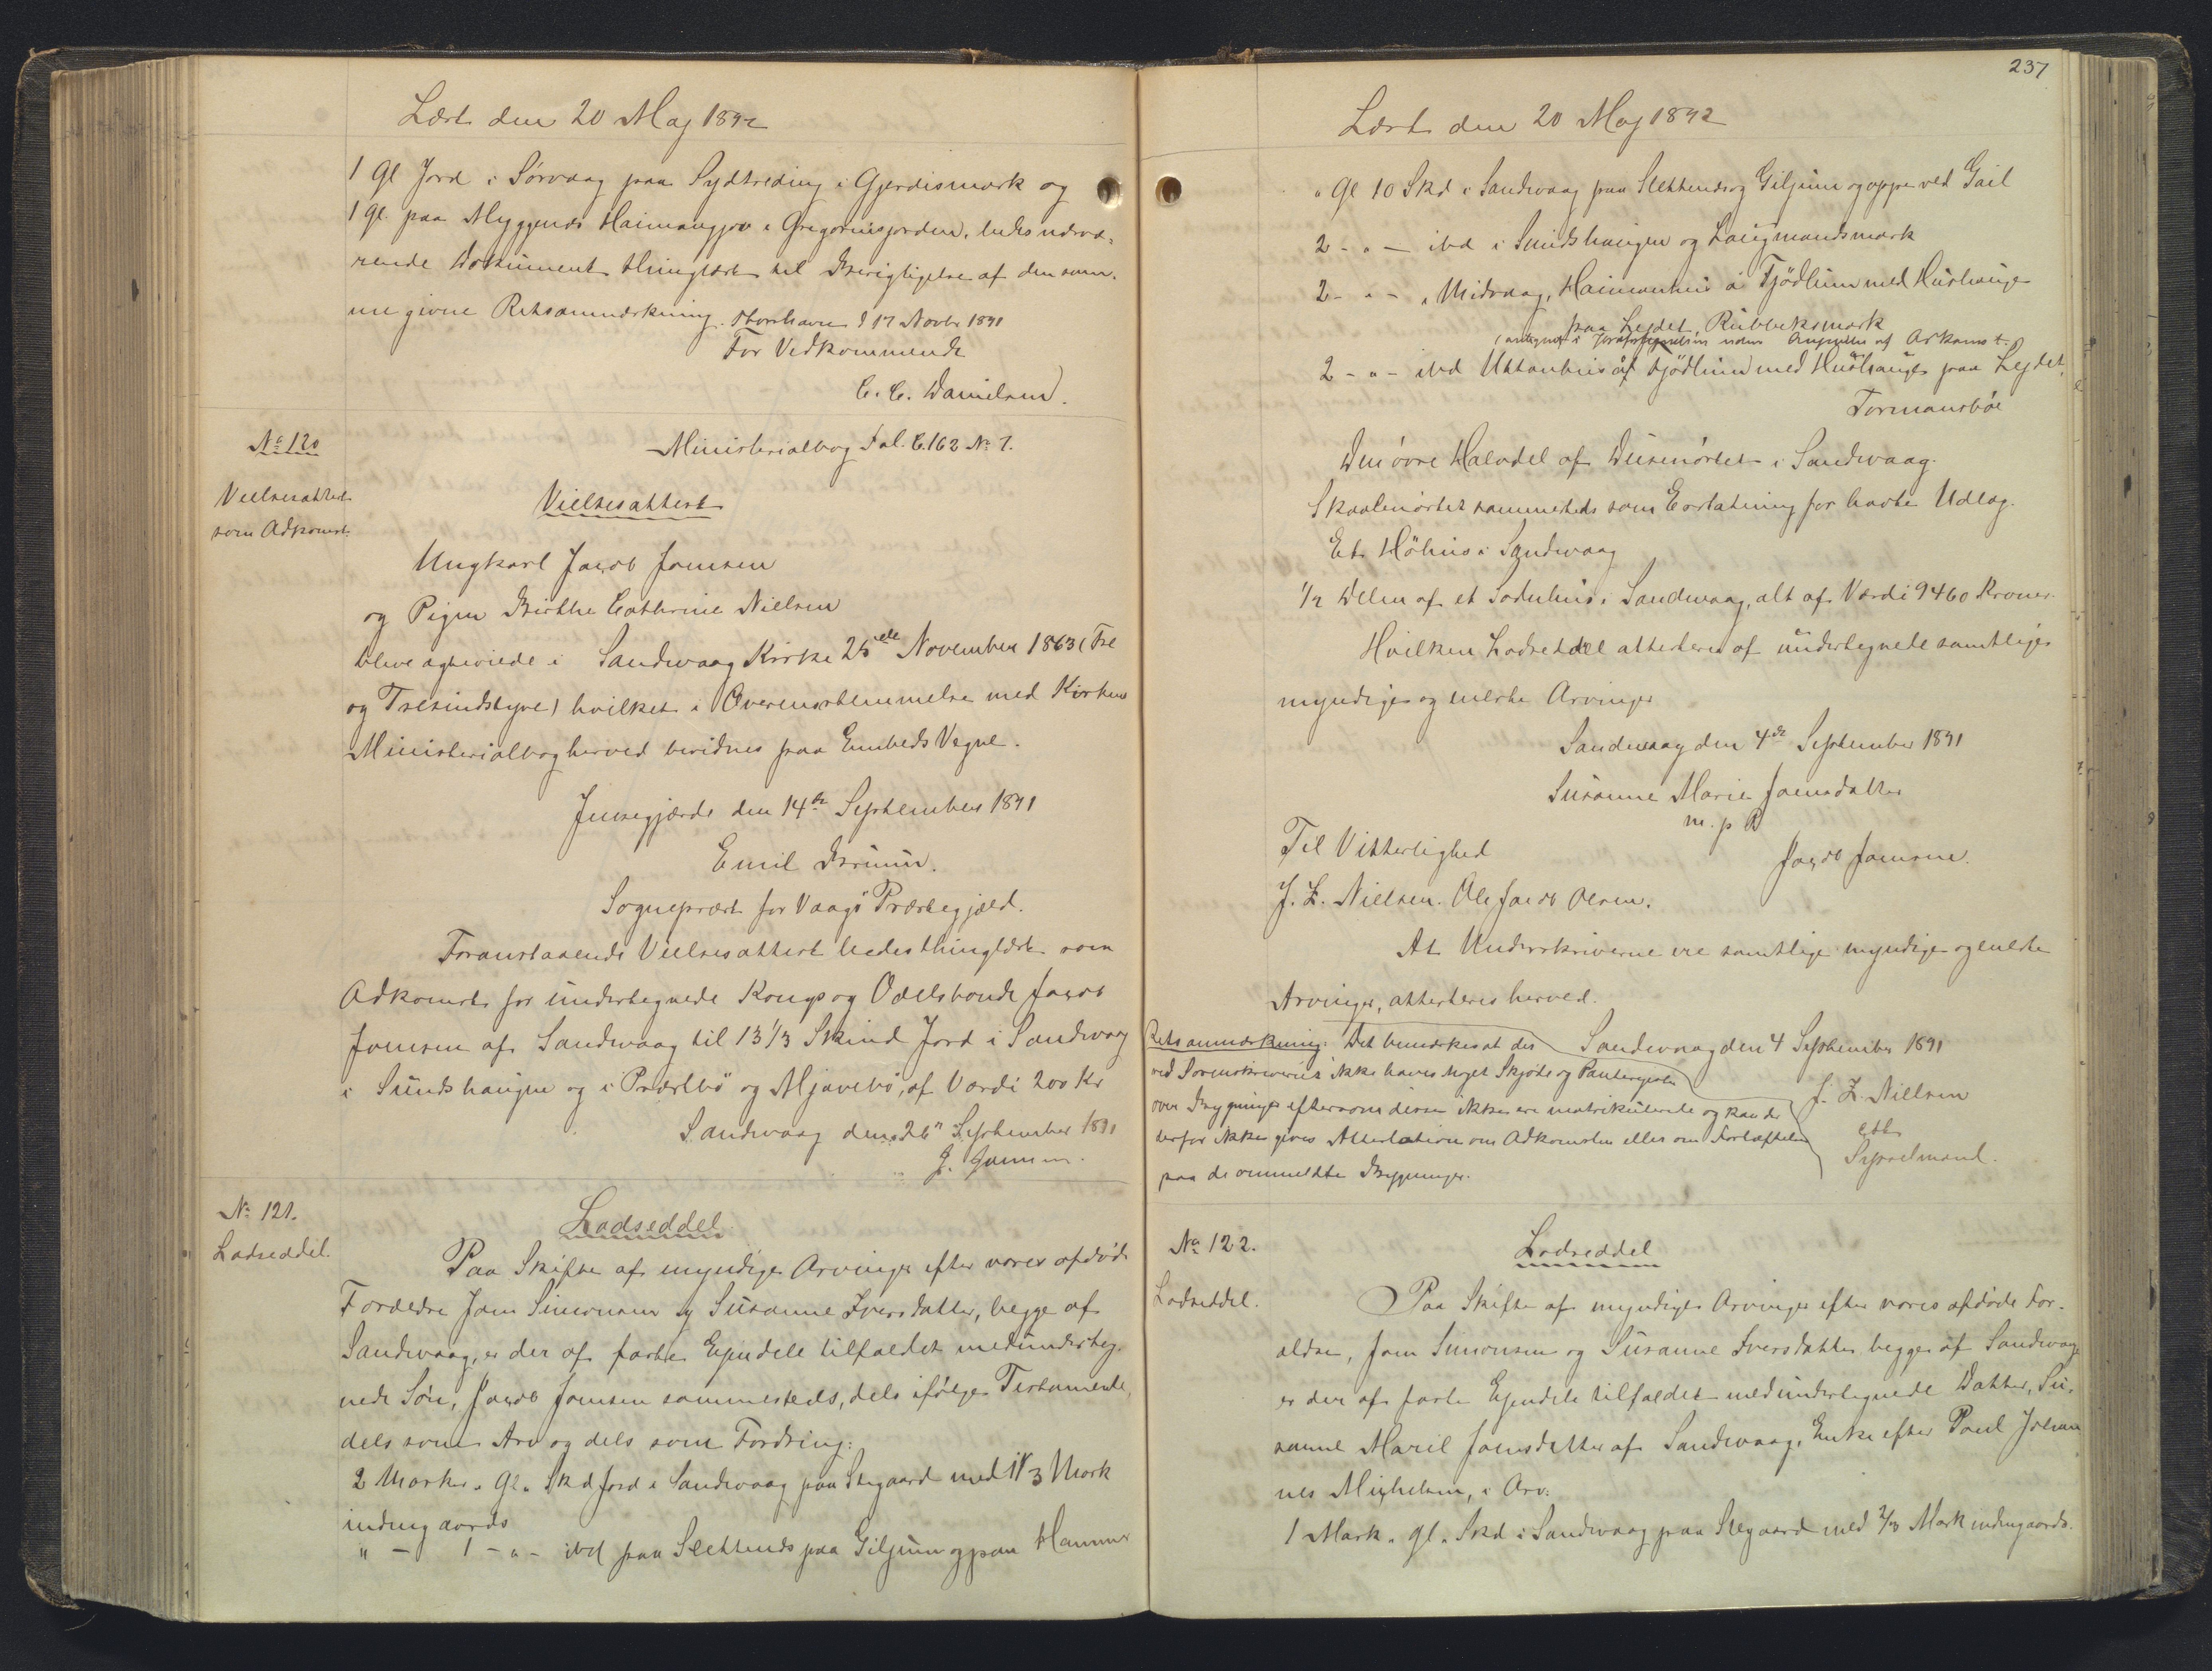 Læst den 20 Maj 1892
1 Gl Jord i Sørvaag paa Sydtreding i Gjerdismark og
1 Gl. paa Myggenæs Haimangjov i Gregoriusjorden, bedes nærvæ-
rende Dokument thinglæst til Berigtigelse af den sam-
me givne Retsanmærkning. Thorshavn d 17 Novbr 1891
For Vedkommende
C. C. Danielsen.
No 120
Ministerialbog Fol. C.162 No 7.
Vielsesattest
som Adkomst.
Vielsesattest
Ungkarl Jacob Joensen
og Pigen Birthe Cathrine Nielsen
bleve ægteviede i Sandevaag Kirke 25de November 1863 (Tre
og Tresindstyve) hvilket i Overensstemmelse med Kirkens
Ministerialbog herved bevidnes paa Embeds Vegne.
Jensegjærde den 14de September 1891
Emil Bruun.
Sognepræst for Vaagø Præstegjæld.
Foranstaaende Vielsesattest bedes thinglæst som
Adkomst for undertegnede Kongs og Odelsbonde Jacob
Joensen af Sandevaag til 13 1/3 Skind Jord i Sandevaag
i Sundshaugen og i Præstbø og Mjavebø, af Værdi 200 Kr
Sandevaag den 26" September 1891
J. Joensen.
No 121.
Lodseddel.
Lodseddel.
Paa Skifte af myndige Arvinger efter vores afdøde
Forældre Joen Simonsen og Susanne Iversdatter, begge af
Sandevaag, er der af faste Ejendele tilfaldet medunderteg-
nede Søn, Jacob Joensen sammesteds, dels ifølge Testamente,
dels som Arv og dels som Fordring:
2 Marker " Gl " Skd Jord i Sandevaag paa Stegaard med 1 1/3 Mark
indengaards
" - 1 - " - ibd paa Slettends paa Giljum og paa Hammer
237
Læst den 20 Maj 1892
" Gl 10 Skd i Sandevaag paa Slettends og Giljum og oppe ved Gail
2 - " - ibd i Sundshaugen og Laugmandsmark
2 - " - i Midvaag, Haimanhus á Fjødlum med Hushauge
paa Lejdet, Rubbeksmark
(antegnet i Jordfortegnelsen uden Angivelse af Adkomst.)
2 - " - ibd Uttanhus áf Fjødlum med Hushauge paa Lejdet,
Tormansbøe
Den øvre Halvdel af Dusenørtet i Sandevaag.
Skaalenørtet sammesteds som Erstatning for havte Udlæg.
Et Høhus i Sandevaag
1/2 Delen af et Sodnhus i Sandevaag, alt af Værdi 9460 Kroner.
Hvilken Lodseddel attesteres af undertegnede samtlige
myndige og eneste Arvinger
Sandevaag den 4de September 1891
Susanne Marie Joensdatter
m. p P
Til Vitterlighed
Jacob Joensen.
J. Z. Nielsen. Ole Jacob Olsen.
At Underskriverne ere samtlige myndige og eneste
Arvinger, attesteres herved.
Sandevaag den 4 September 1891
J. Z. Nielsen
cst
Sysselmand.
Retsanmærkning: Det bemærkes at der
ved Sorenskriveriet ikke haves noget Skjøde og Panteregister
over Bygninger eftersom disse ikke ere matrikulerede og kan der
derfor ikke gives Attestation om Adkomsten eller om Forhæftelser
paa de ommeldte Bygninger.
No 122.
Lodseddel.
Lodseddel
Paa Skifte af myndige Arvinger efter vores afdøde For-
ældre, Joen Simonsen og Susanne Iversdatter begge af Sandevaag
er der af faste Ejendele tilfaldet medundertegnede Datter, Su-
sanne Marie Joensdatter af Sandevaag, Enke efter Poul Johan-
nes Michelsen, i Arv:
1 Mark " Gl " Skd i Sandevaag paa Stegaard med 2/3 Mark indengaards.